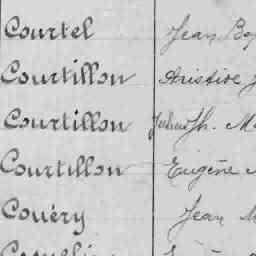 Courtel Jean
Courtillon Aristide
Courtillon
Courtillon Eugène
Couéry Jean